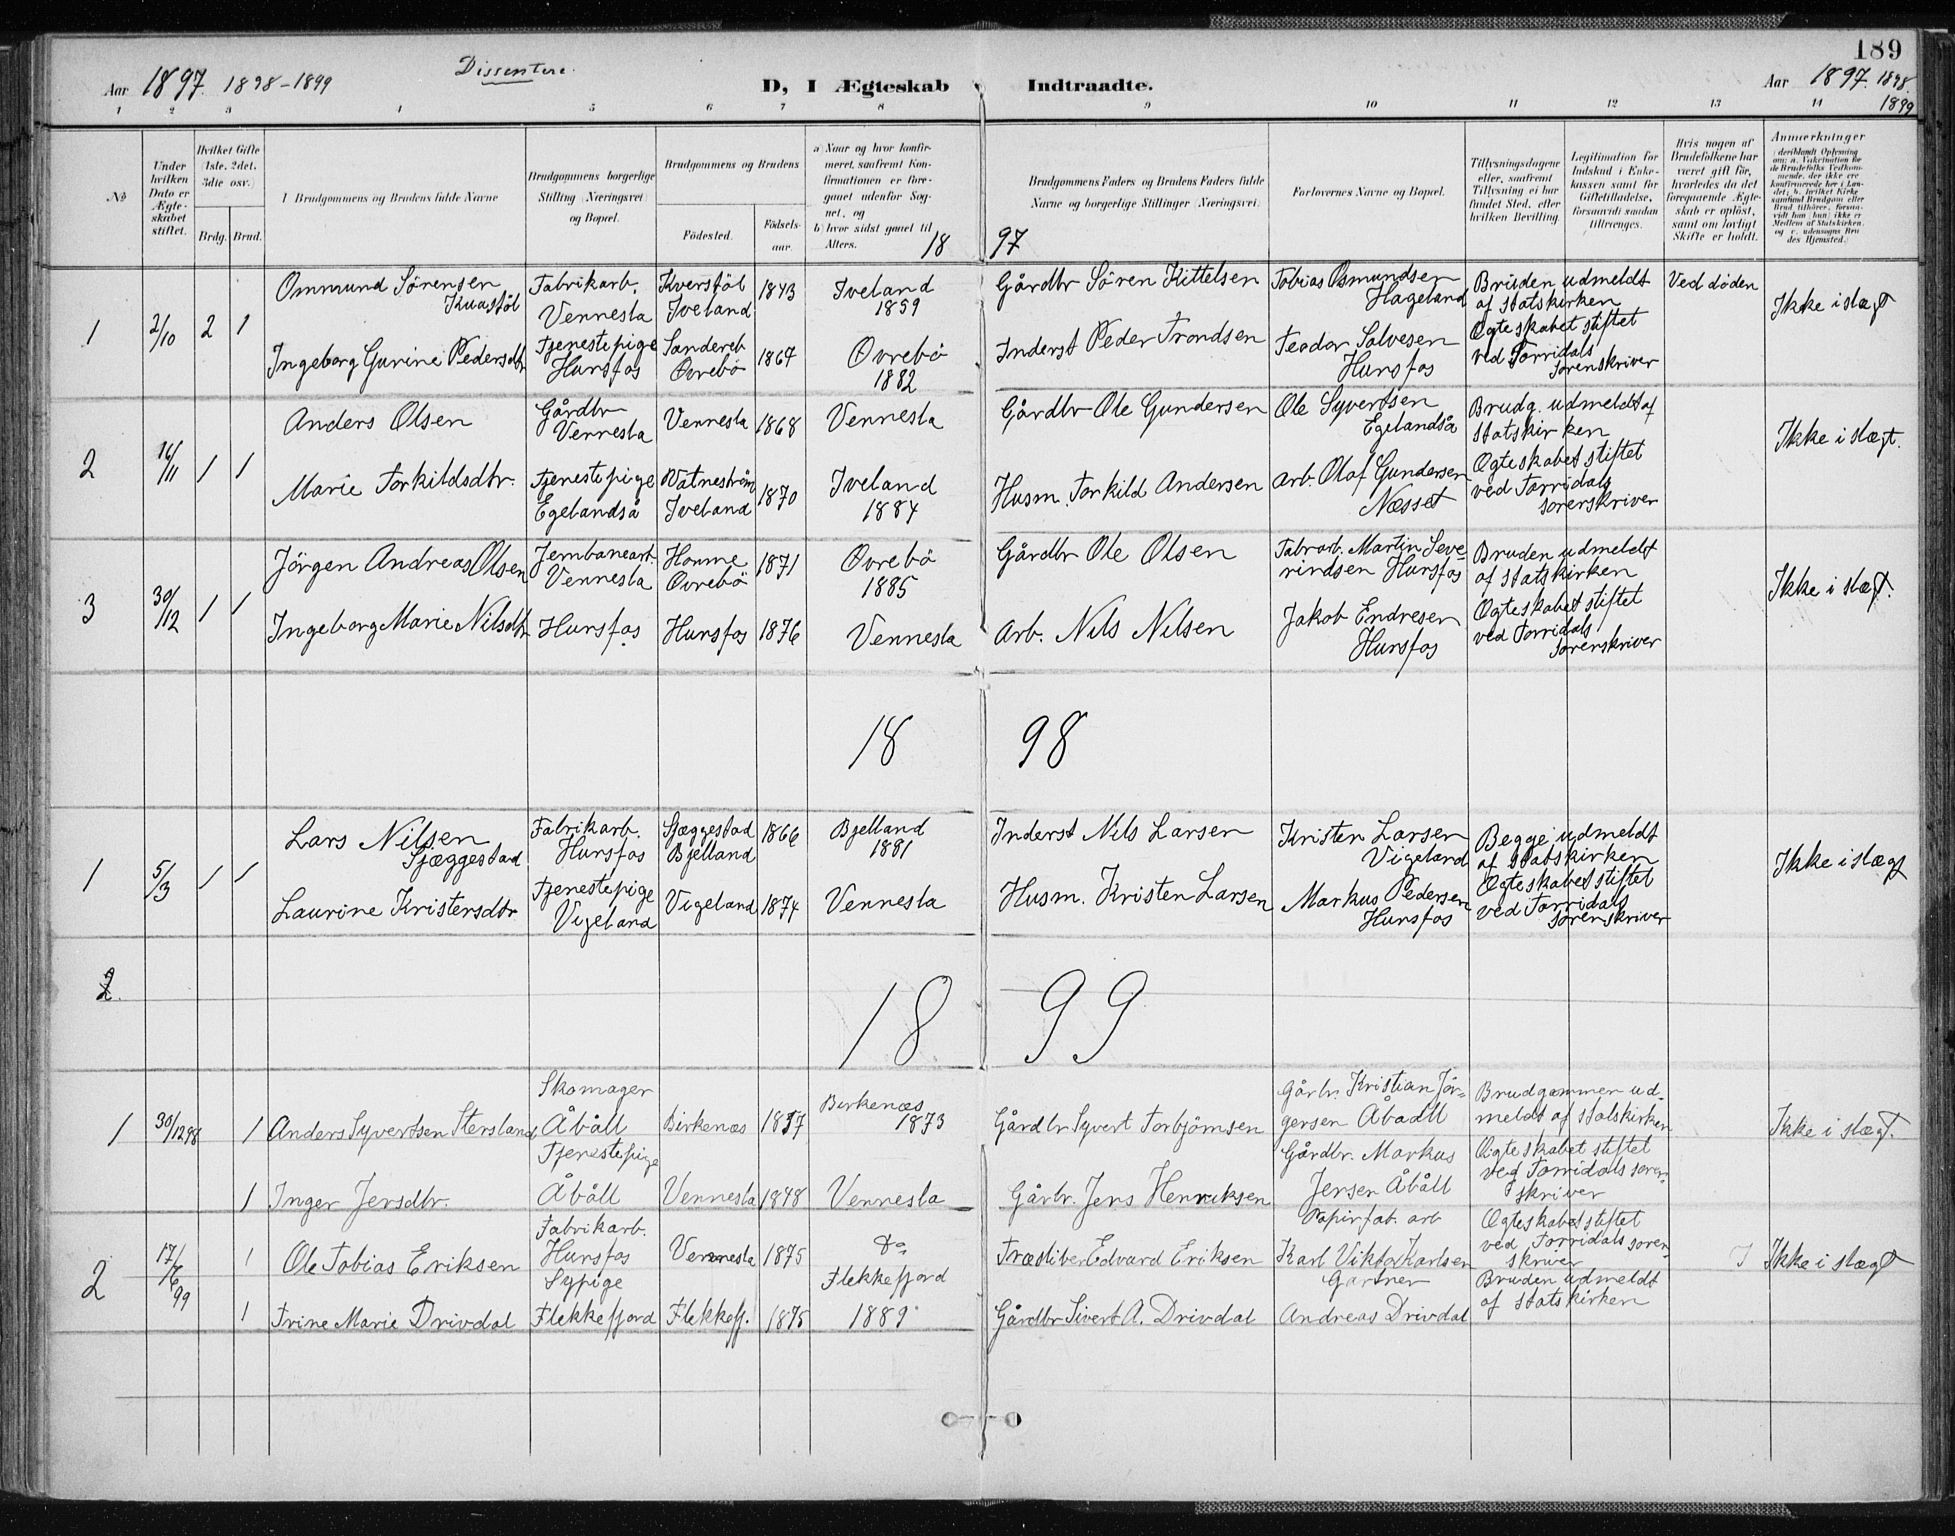 189
Aar 1897 1898-1899
Dissentere.
D, I Ægteskab Indtraadte.
Aar 1897. 1898.
1899
1 2 3 4 5 6 7 8 9 10 11 12 13 14
No
Under hvilken Dato er Ægteskabet stiftet.
Hvilket Gifte (1ste, 2det, 3die osv.)
Brdg. Brud.
Brudgommens og Brudens fulde Navne
Brudgommens borgerlige Stilling (Næringsvei) og Bopæl.
Brudgommens og Brudens
Födested.
Födselsaar.
a) Naar og hvor konfirmeret, saafremt Konfirmationen er foregaaet udenfor Sognet, og
b) hvor sidst gaaet til Alters.
Brudgommens Faders og Brudens Faders fulde Navne og borgerlige Stillinger (Næringsvei).
Forlovernes Navne og Bopæl.
Tillysningsdagene eller, saafremt Tillysning ei har fundet Sted, efter hvilken Bevilling.
Legitimation for Indskud i Enkekassen samt for Giftetilladelse, forsaavidt saadan tiltrænges.
Hvis nogen af Brudefolkene har været gift før, hvorledes da det foregaaende Ægteskab er opløst, samt om lovligt Skifte er holdt.
Anmærkninger
18 97
1 2/10 2 1
Ommund Sörensen
Kvastöl
Fabrikarb.
Vennesla
Kverstöl
Iveland
1843
Iveland
1859
Gårdbr Sören Kittelsen
Tobias Osmundsen
Hageland
Bruden udmeldt
af statskirken
Ved döden
Ikke i slægt
Ingeborg Gurine Pedersdtr
Tjenestepige
Hunsfos
Sandereb
Ovrebö
1867
Ovrebö
1882
Inderst Peder Trondsen
Teodor Salvesen
Hunsfos
Ogteskabet stiftet
ved Torridals
sorenskriver
2 16/11 1 1
Anders Olsen
Gårdbr
Vennesla
Vennesla
1868
Vennesla
Gårdbr Ole Gundersen
Ole Syvertsen
Egelandså
Brudg. udmeldt af
statskirken
Ikke i slægt.
Marie Torkildsdtr.
Tjenestepige
Egelandså
Vatneström
Iveland
1870
Iveland
1884
Husm. Torkild Andersen
arb. Olaf Gundersen
Næsset
Ogteskabet stiftet
ved Torridals
sorenskriver
3 30/12 1 1
Jörgen Andreas Olsen
Jernbanearb.
Vennesla
Homme
Ovrebö
1871
Ovrebö
1885
Gårdbr Ole Olsen
Fabrarb. Martin Seve-
rindsen Hunsfos
Bruden udmeldt
af statskirken
Ikke i slægt.
Ingeborg Marie Nilsdtr
Hunsfos
Hunsfos
1876
Vennesla
Arb. Nils Nilsen
Jakob Endresen
Hunsfos
Ogteskabet stiftet
ved Torridals
sorenskriver
18 98
1 5/3 1 1
Lars Nilsen
Sjæggestad
Fabrikarb.
Hunsfos
Sjæggestad
Bjelland
1866
Bjelland
1881
Inderst Nils Larsen
Kristen Larsen
Vigeland
Begge udmeldt
af statskirken
Ikke i slægt
Laurine Kristensdtr
Tjenestepige
Vigeland
Vigeland
1874
Vennesla
Husm. Kristen Larsen
Markus Pedersen
Hunsfos
Ogteskabet stiftet
ved Torridals
sorenskriver
2.
18 99
1 30/12 98 1
Anders Syvertsen Stersland
Skomager
Åbåll
Birkenæs
1857
Birkenæs
1873
Gårdbr Syvert Torbjörnsen
Gårbr. Kristian Jör-
gensen Åbadll
Brudgommen ud-
meldt af statskirken
Ikke i slægt.
1
Inger Jensdtr.
Tjenestepige
Åbåll
Vennesla
1848
Vennesla
Gårbr. Jens Henriksen
Gårdbr. Markus
Jensen Åbåll
Ogteskabet stiftet
ved Torridals soren-
skriver
2 17/6 99 1
Ole Tobias Eriksen
Fabrikarb.
Hunsfos
Vennesla
1875
Do
Træsliber Edvard Eriksen
Papirfab. arb
Karl Viktor Karlsen
Ogteskabet stiftet
ved Torridals soren-
skriver
Ikke i slægt
1
Trine Marie Drivdal
Sypige
Flekkefjord
Flekkefj.
1875
Flekkefjord
1889
Gårdbr Sivert A. Drivdal
Gartner
Andreas Drivdal
Bruden udmeldt
af statskirken